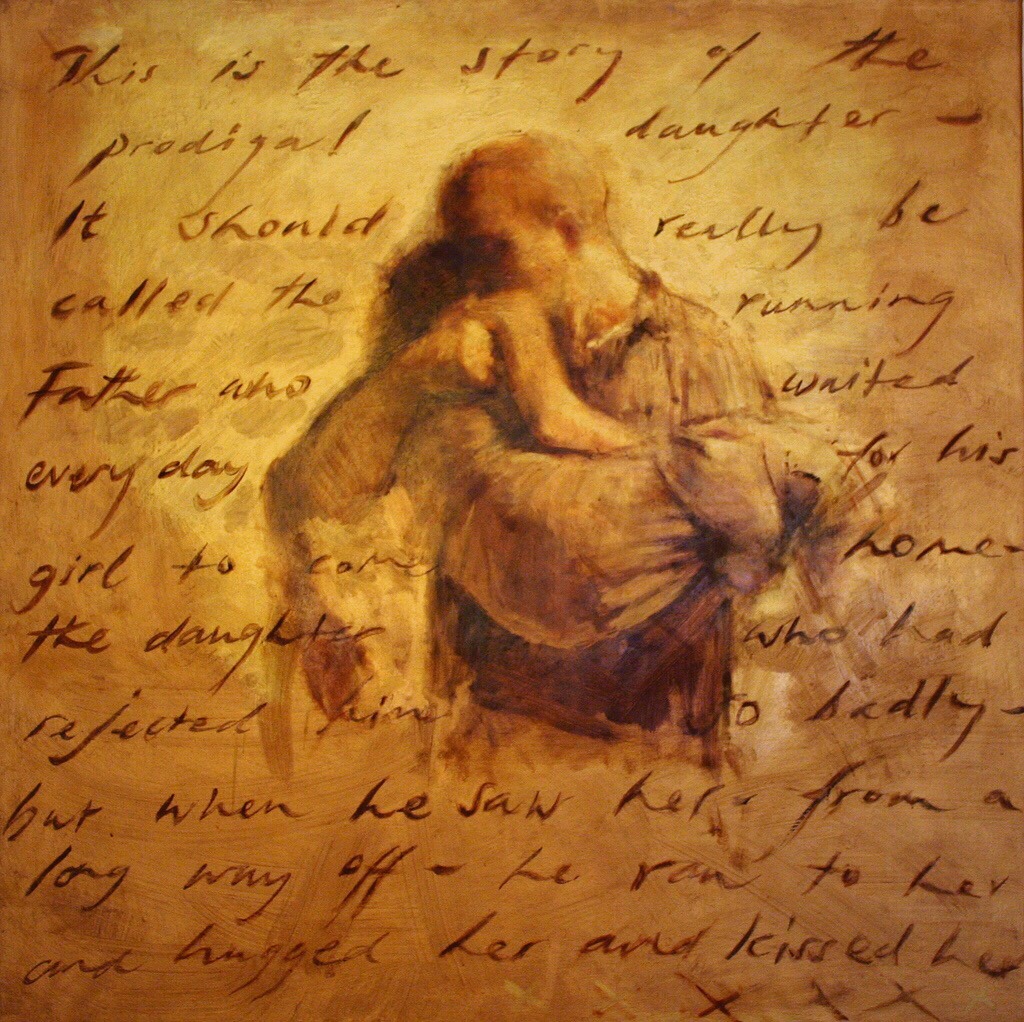 This is the story of the
prodigal daughter -
It should really be
called the running
Father who waited
every day for his
girl to come home-
the daughter who had
rejected him so badly-
but when he saw her - from a
long way off - he ran to her
and hugged her and kissed her
x x x x x